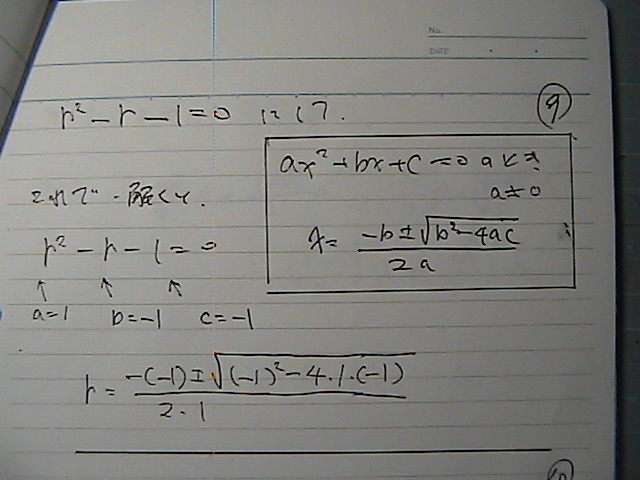 No.
DATE
⑨
r² - r - 1 = 0 にして.
ax² + bx + c = 0 のとき
a ≠ 0
x = (-b ± √(b² - 4ac)) / 2a
これで 解くと.
r² - r - 1 = 0
↑ ↑ ↑
a=1 b=-1 c=-1
r = (-(-1) ± √((-1)² - 4・1・(-1))) / 2・1